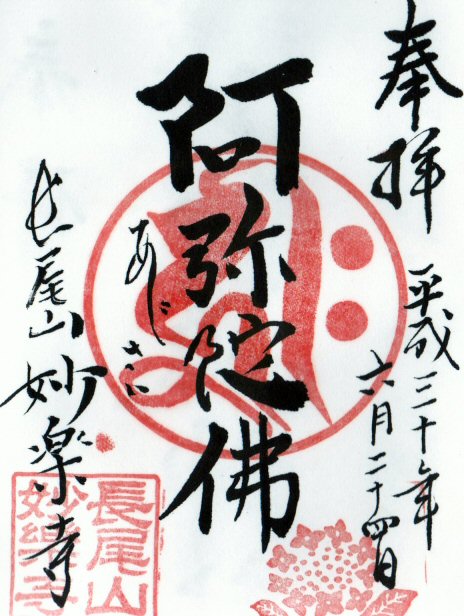 奉拝
平成三十年
六月二十四日
阿弥陀佛
あじさい
長尾山妙楽寺
長尾山
妙樂寺